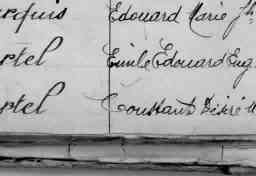 rquis Edouard Marie Jh
rtel Emile Edouard Eug
rtel Constant Désiré